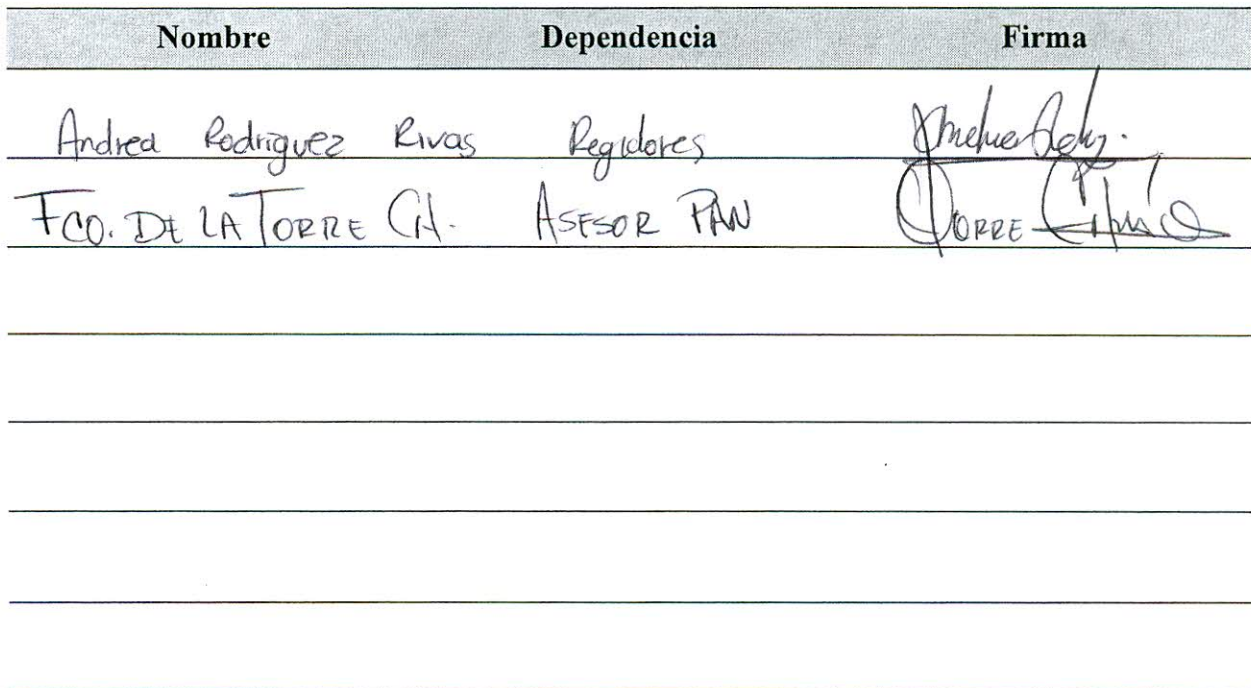 Nombre Dependencia Firma
Andrea Rodriguez Rivas Regidores
FCO. DE LA TORRE CH. ASESOR PAN TORRE